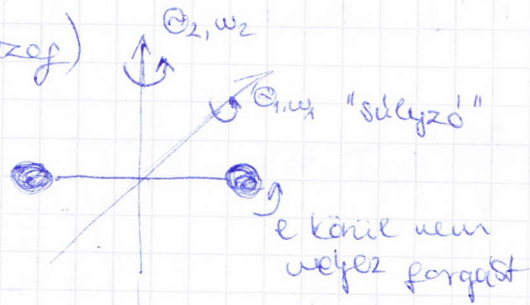 zog)
Θ₂, ω₂
Θ₁, ω₁ "súlyzó"
e körül nem
végez forgást